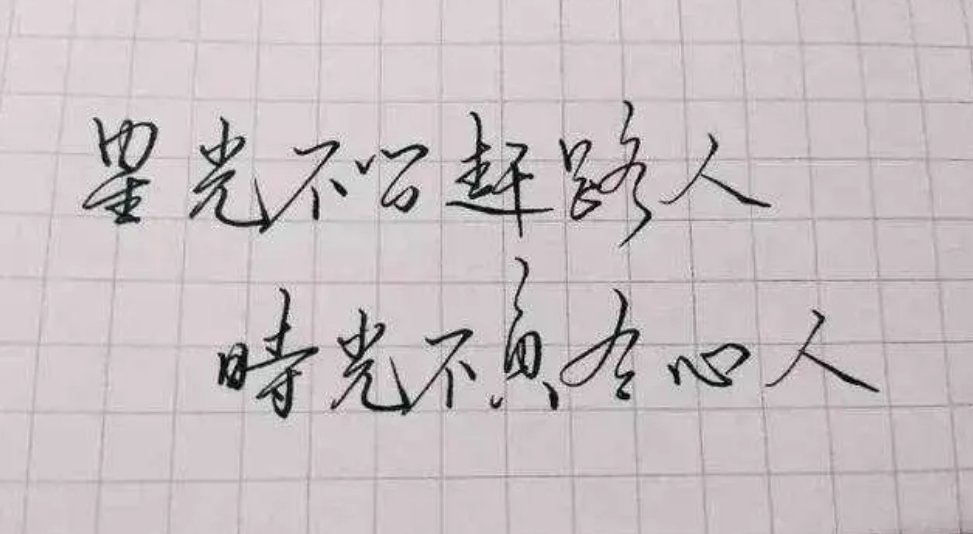 星光不问赶路人
時光不負有心人